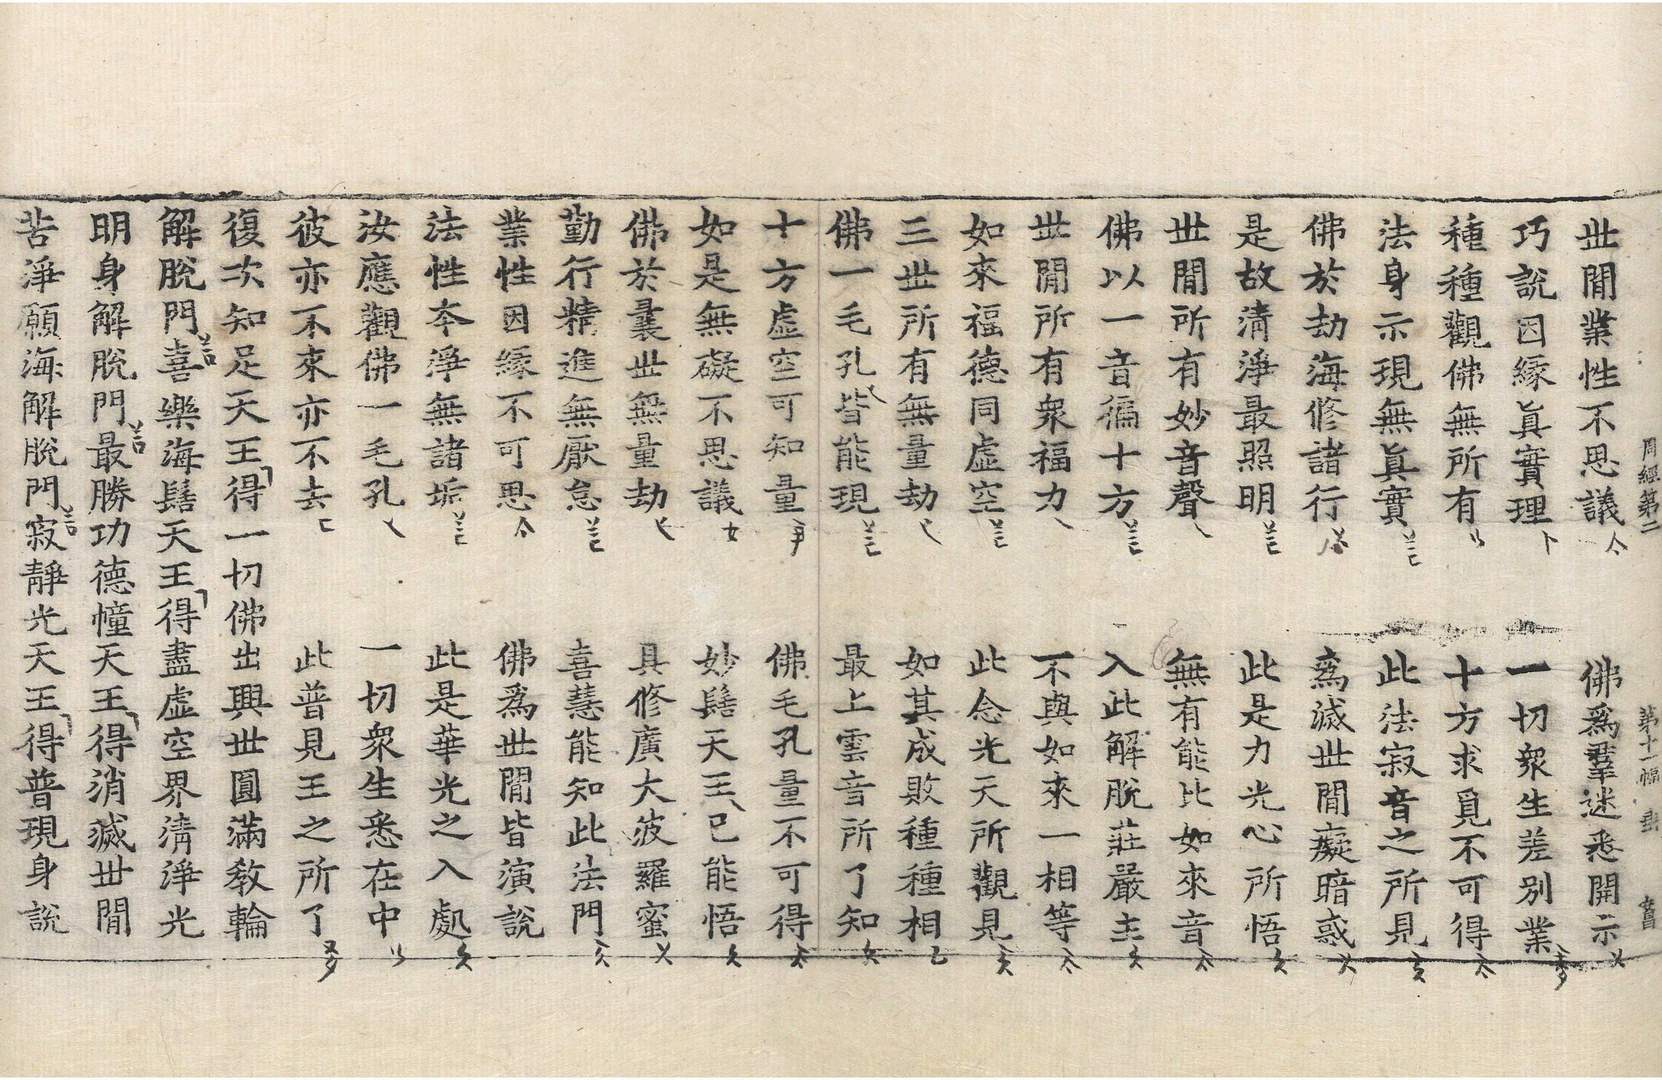 周經第二 第十一幅
世間業性不思議 佛爲羣迷悉開示
巧說因緣眞實理 一切衆生差別業
種種觀佛無所有 十方求覓不可得
法身示現無眞實 此法寂音之所見
佛於劫海修諸行 爲滅世間癡暗惑
是故清淨最照明 此是力光心所悟
世間所有妙音聲 無有能比如來音
佛以一音徧十方 入此解脫莊嚴主
世間所有衆福力 不與如來一相等
如來福德同虛空 此念光天所觀見
三世所有無量劫 如其成敗種種相
佛一毛孔皆能現 最上雲音所了知
十方虛空可知量 佛毛孔量不可得
如是無礙不思議 妙髻天王已能悟
佛於曩世無量劫 具修廣大波羅蜜
勤行精進無厭怠 喜慧能知此法門
業性因緣不可思 佛爲世間皆演說
法性本淨無諸垢 此是華光之入處
汝應觀佛一毛孔 一切衆生悉在中
彼亦不來亦不去 此普見王之所了
復次知足天王得一切佛出興世圓滿敎輪
解脫門喜樂海髻天王得盡虛空界清淨光
明身解脫門最勝功德幢天王得消滅世間
苦淨願海解脫門寂靜光天王得普現身說